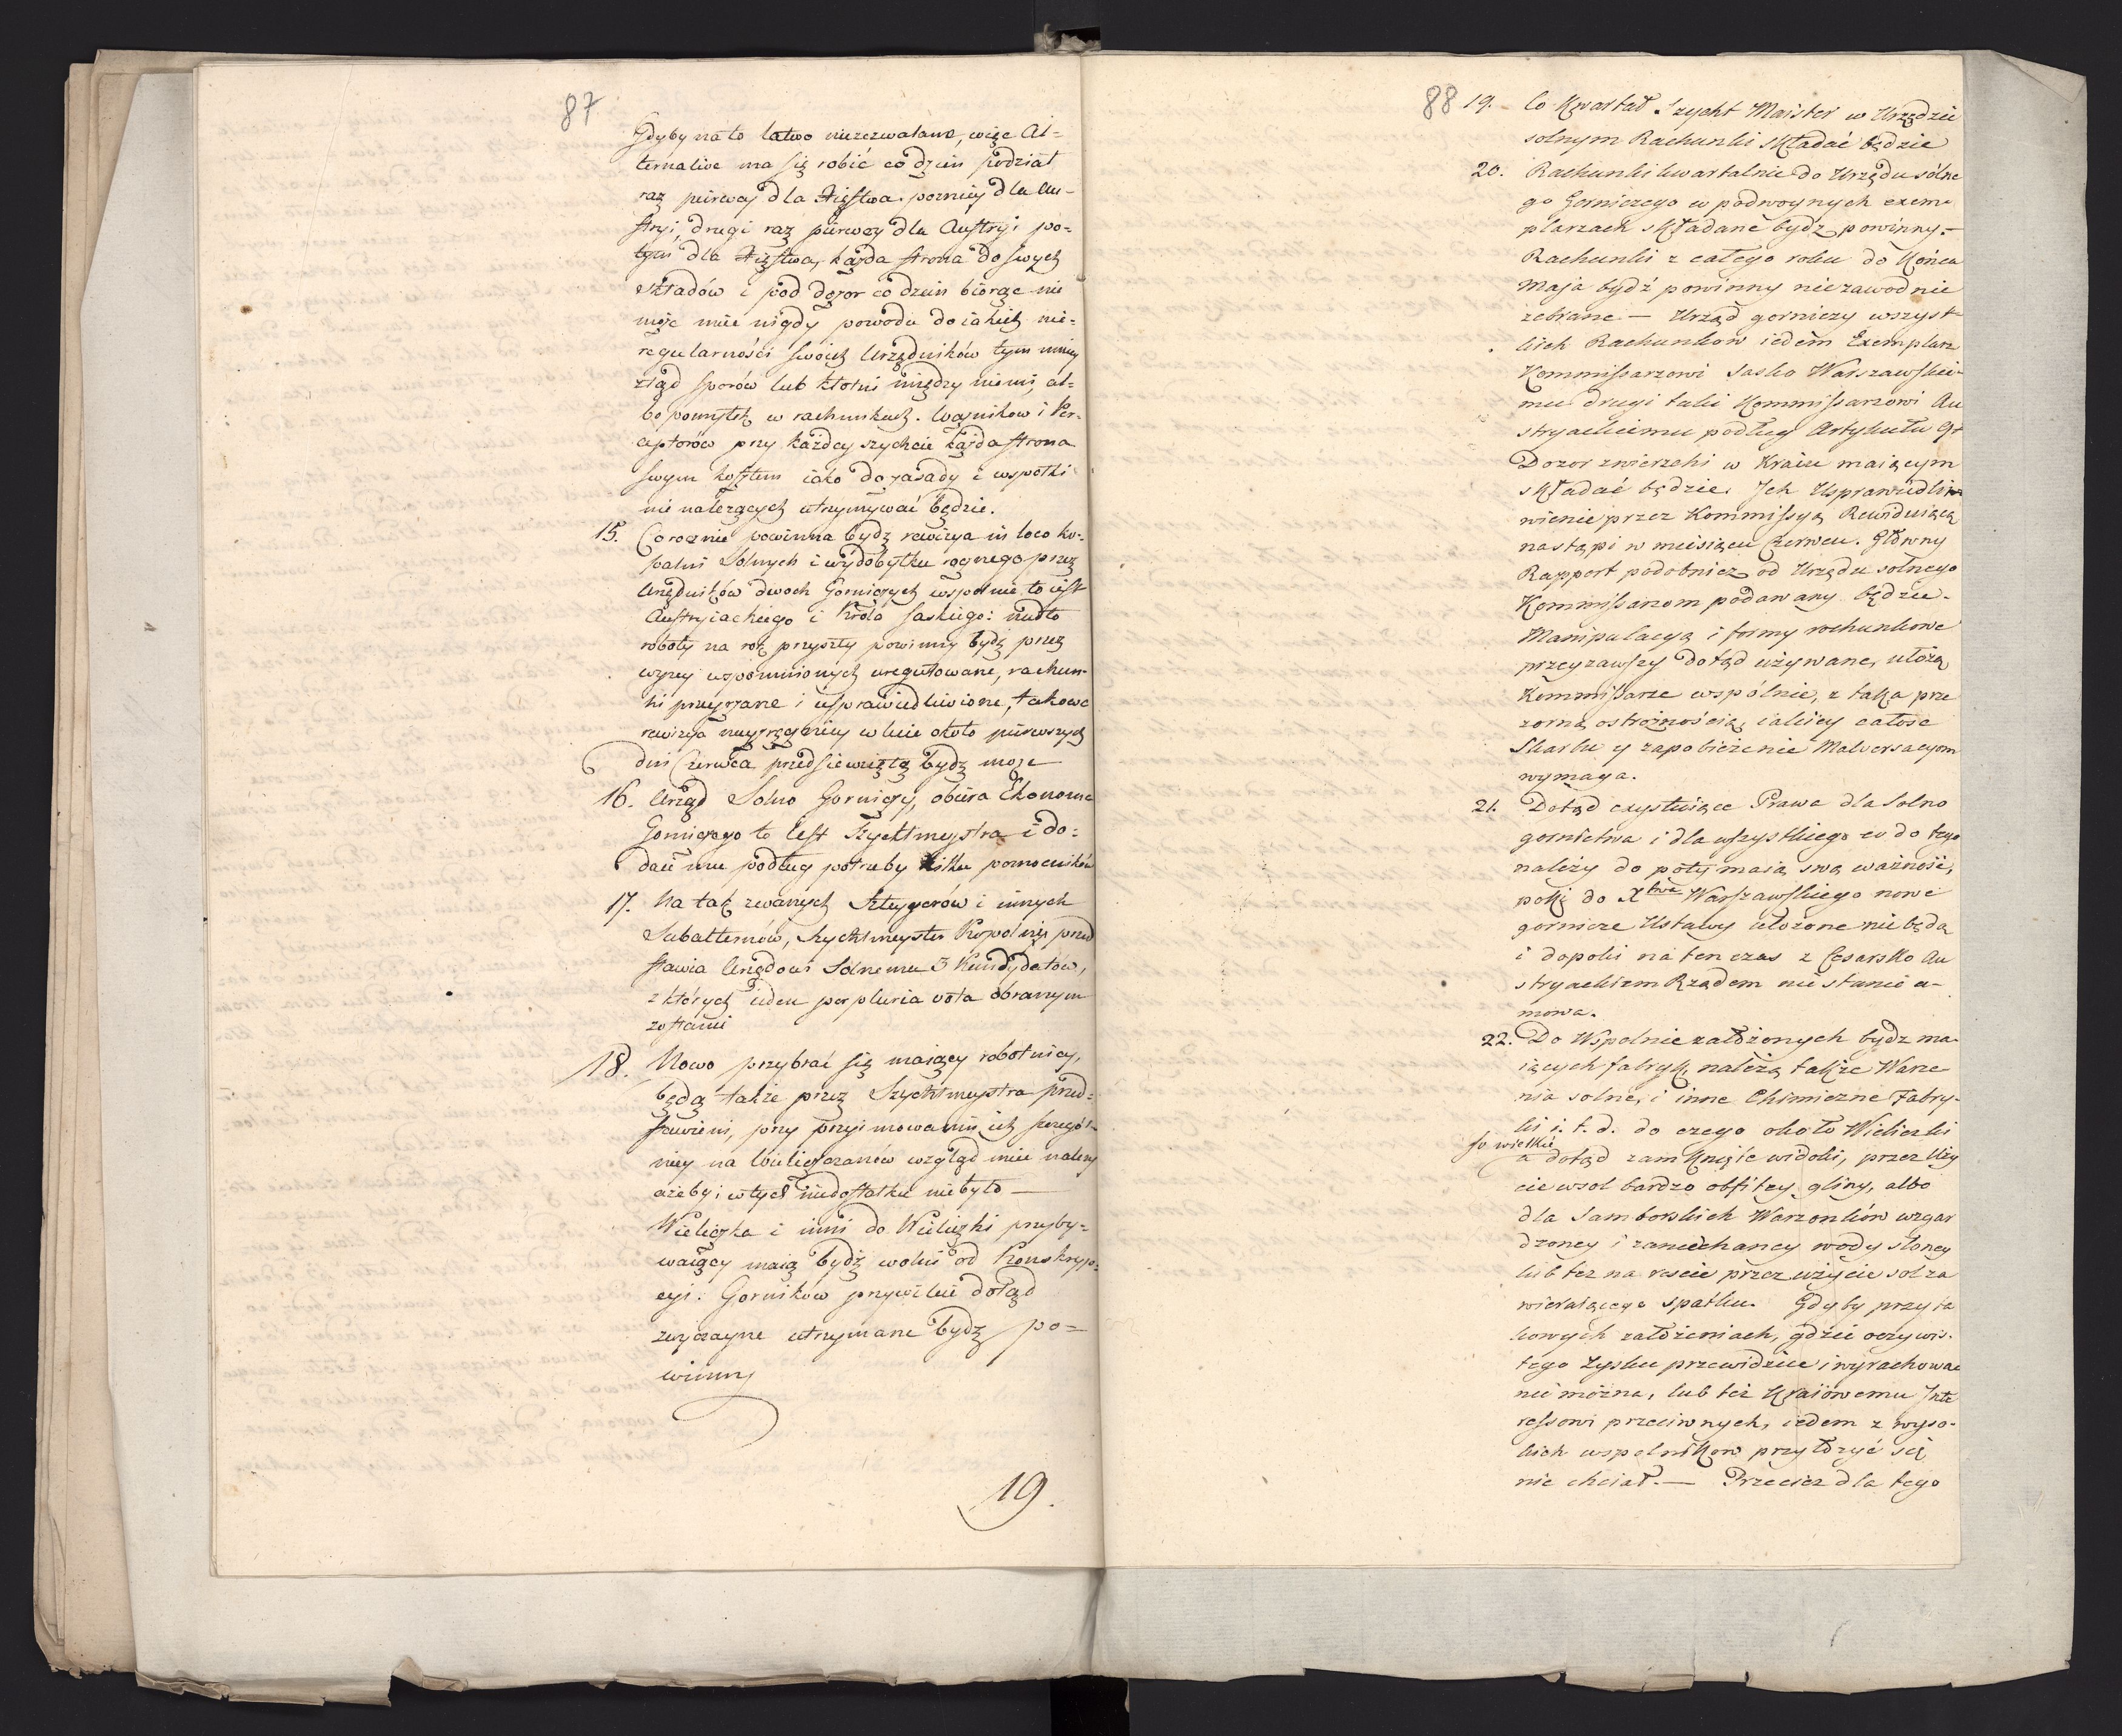 87
Gdyby na to łatwo niezezwalano, więc Al=
ternative ma się robić co dzień podział
raz pierwey dla Xięstwa poznicy dla Au=
stryi, drugi raz pierwey dla Austryi po=
tym dla Xięstwa, każda strona do swych
składów i pod dozor co dzień biorąc nie
może mieć nigdy powodu do iakich nie=
regularności swoich Urzędników tym mniey
ztąd sporów lub kłótni między niemi, al=
bo pomyłek w rachunkach. Ważników i Per=
ceptorów przy każdey szychcie każda strona
swym kosztem iako do zasady i wspołki
nie należących utrzymywać będzie.
15. Corocznie powinna bydź rewizya in loco ko=
palni Solnych i wydobytku rocznego przez
Urzędników dwoch Gorniczych wspolnie to iest
Austryiackiego i Króla Saskiego: nadto
roboty na rok przyszły powinny bydź przez
wyzey wspomnionych uregulowane, rachun=
ki przeyrzane i usprawiedliwione, takowa
rewizya nayzręczniey w lecie około pierwszych
dni Czerwca przedsięwziętą bydź może
16. Urząd Solno Gorniczy, obiera Ekonoma
Gorniczego to iest Szychtmeystra i do=
daie mu podług potrzeby kilku pomocników
17. Na tak zwanych Szteygerów i innych
Subalternów, Szychtmeyster Kopolnis przed
stawia Urzędowi Solnemu 3 Kandydatów,
z których ieden per pluria vota obranym
zostanie
18. Nowo przybrać się maiący robotnicy,
będą także przez Szychtmeystra przed=
stawieni, przy przyimowaniu ich szczegól=
niey na Wieliczczanów wzgląd mieć należy
ażeby i w tych niedostatku nie było —
Wieliczka i inni do Wieliczki przyby=
waiący maią bydź wolni od Konskryp=
cyi. Gorników przywileie dotąd
zwyczayne utrzymane bydź po=
winny
19.
88
19. Co Kwartał Szycht Maister w Urzędzie
solnym Rachunki składać będzie
20. Rachunki kwartalnie do Urzędu sólne
go Gorniczego w podwoynych exem=
plarzach składane bydź powinny. —
Rachunki z całego roku do końca
Maja bydź powinny niezawodnie
zebrane — Urząd gorniczy wszyst=
kich Rachunkow ieden Exemplarz
Kommissarzowi Sasko Warszawskie=
mu drugi taki Kommissarzowi Au
stryackiemu podług Artykułu 9.
Dozor zwierzchi w Kraiu maiącym
składać będzie. Jch Usprawiedliw
wienie przez Kommissyą Rewiduiącą
nastąpi w miesiącu Czerwcu. Główny
Rapport podobnież od Urzędu solnego
Kommissarzom podawany będzie.
Manipulacyą i formy rachunkowe
przeyrzawszy dotąd używane, ułożą
Kommissarze wspólnie, z taką prze
zorną ostrożnością, iakiey całość
Skarbu y zapobieżenie Malversacyom
wymaga.
21. Dotąd exystuiące Prawa dla Solno
gornictwa i dla wszystkiego co do tego
należy do poty maią swą ważność,
poki do X<sup>twa</sup> Warszawskiego nowe
gornicze Ustawy ułożone nie będą
i dopoki na ten czas z Cesarsko Au
stryackiem Rządem nie stanie u=
mowa.
22. Do Wspolnie założonych bydź ma=
iących fabryk, należą także Warze
nia solne, i inne Chimiczne Fabry=
ki i. t. d. do czego około Wieliczki
so wielkie
a dotąd zamknięte widoki, przez Uży
cie w sol bardzo obfitey gliny, albo
dla Samborskich Warzonków wzgar
dzoney i zaniechaney wody słoney
lub też na reście przez użycie sol za
wieraiącego spatku. Gdyby przy ta
kowych założeniach, gdzie oczywis=
tego zysku przewidzieć i wyrachować
nie można, lub też Kraiowemu Inte
ressowi przeciwnych, ieden z wyso=
kich wspolników przyłożyć się
nie chciał. — Przecież dla tego